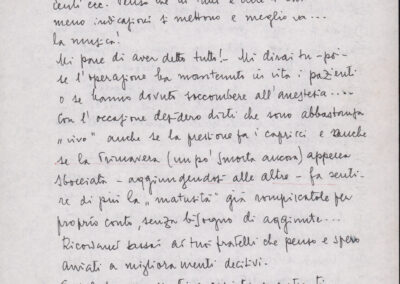 centi ecc. Penso che in tutti e due i
meno indicazioni si mettono e meglio va...
la musica!
Mi pare di aver detto tutto! - Mi dirai tu - poi -
se l'operazione ha mantenuto in vita i pazienti
o se hanno dovuto soccombere all'anestesia....
Con l'occasione desidero dirti che sono abbastanza
"vivo" anche se la pressione fa i capricci e anche
se la Primavera (un po' smorta ancora) appena
sbocciata - aggiungendosi alle altre - fa senti-
re di più la "maturità" già rompiscatole per
proprio conto, senza bisogno di aggiunte...
Ricordami ai tuoi fratelli che penso e spero
avviati a miglioramenti decisivi.